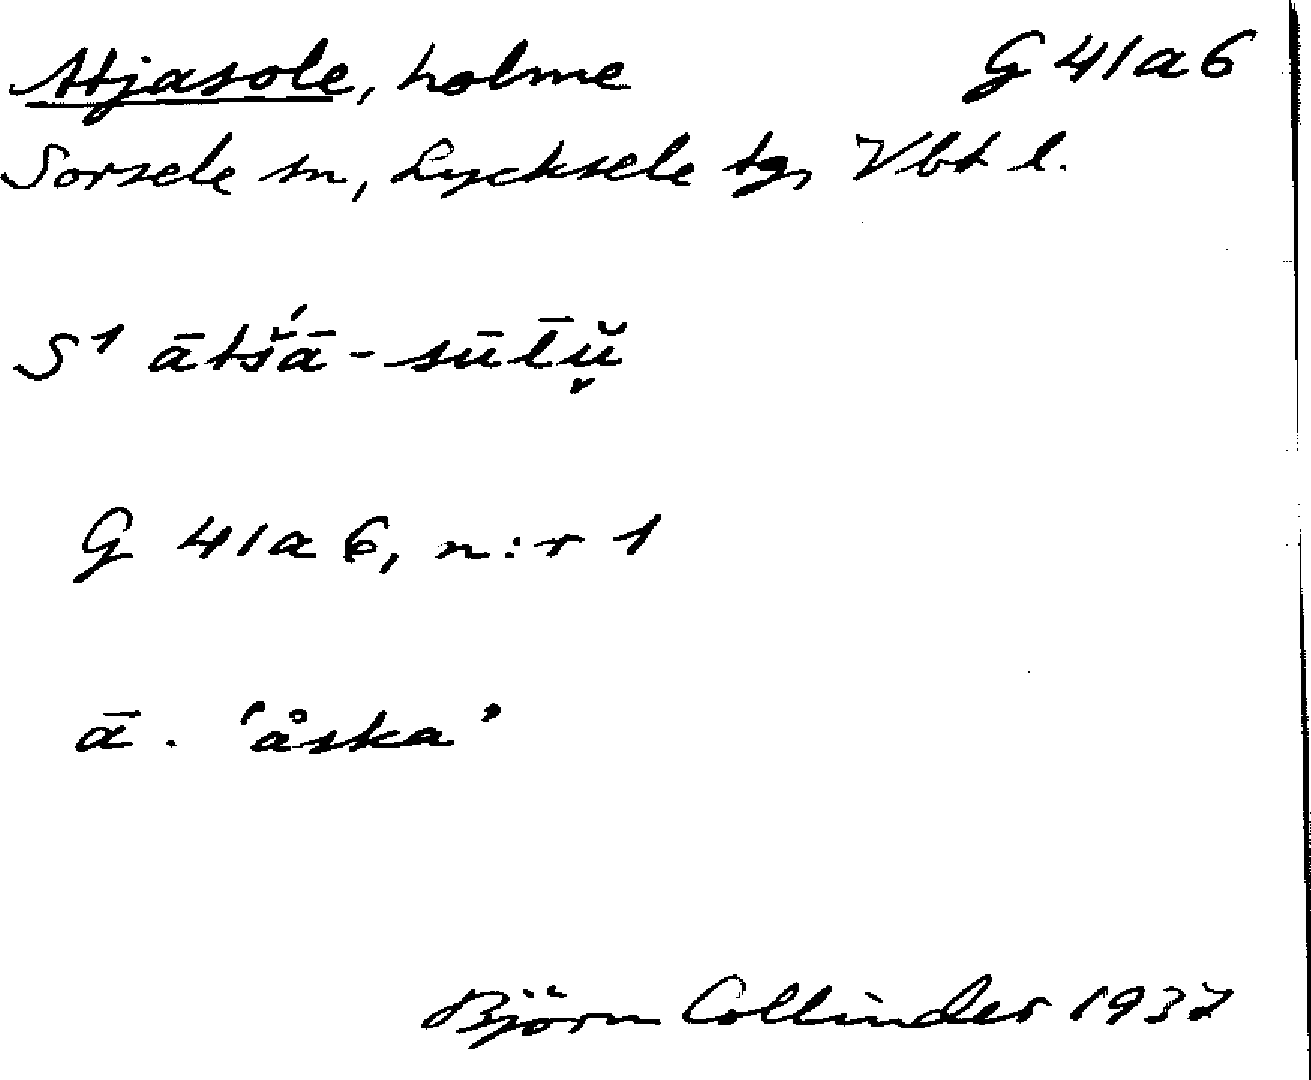 Atjasole, holme G 41a6
Sorsele sn, Lycksele tg, Vbt l.
S1 ātš́ā-sūl̄ụ̆
G 41a6, n:r 1
ā. 'åska'
Björn Collinder 1937